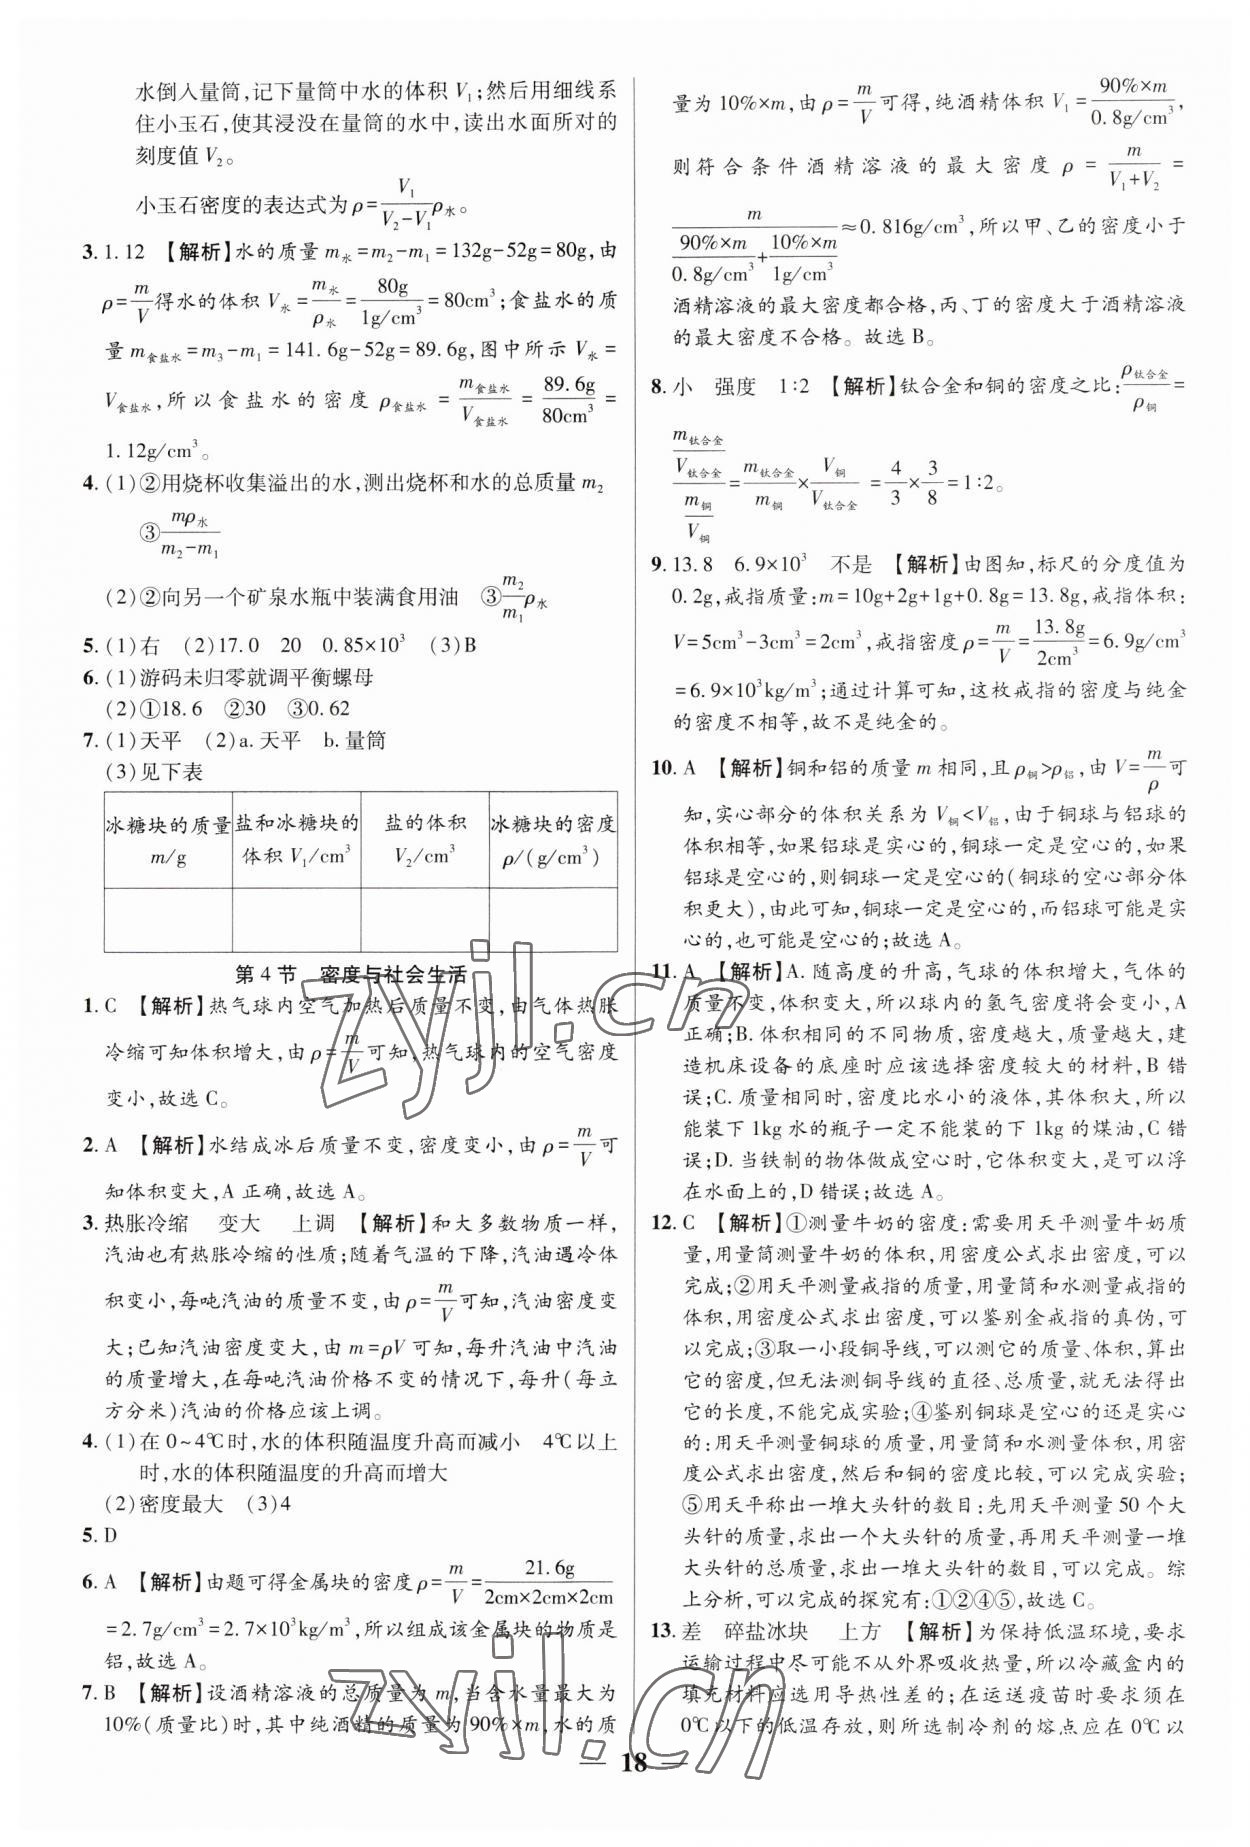 水倒入量筒,记下量筒中水的体积 V₁;然后用细线系
住小玉石,使其浸没在量筒的水中,读出水面所对的
刻度值 V₂。
小玉石密度的表达式为 ρ=V₁/(V₂-V₁)ρ水。
3. 1.12 【解析】水的质量 m水=m₂-m₁=132g-52g=80g,由
ρ=m/V得水的体积 V水=m水/ρ水=80g/(1g/cm³)=80cm³;食盐水的质
量 m食盐水=m₃-m₁=141.6g-52g=89.6g,图中所示 V水=
V食盐水,所以食盐水的密度 ρ食盐水=m食盐水/V食盐水=89.6g/80cm³=
1.12g/cm³。
4. (1)②用烧杯收集溢出的水,测出烧杯和水的总质量 m₂
③mρ水/(m₂-m₁)
(2)②向另一个矿泉水瓶中装满食用油 ③m₂/m₁ρ水
5. (1)右 (2)17.0 20 0.85×10³ (3)B
6. (1)游码未归零就调平衡螺母
(2)①18.6 ②30 ③0.62
7. (1)天平 (2)a. 天平 b. 量筒
(3)见下表
冰糖块的质量 m/g	盐和冰糖块的体积 V₁/cm³	盐的体积 V₂/cm³	冰糖块的密度 ρ/(g/cm³)
第 4 节 密度与社会生活
1. C 【解析】热气球内空气加热后质量不变,由气体热胀
冷缩可知体积增大,由 ρ=m/V可知,热气球内的空气密度
变小,故选 C。
2. A 【解析】水结成冰后质量不变,密度变小,由 ρ=m/V可
知体积变大,A 正确,故选 A。
3. 热胀冷缩 变大 上调 【解析】和大多数物质一样,
汽油也有热胀冷缩的性质;随着气温的下降,汽油遇冷体
积变小,每吨汽油的质量不变,由 ρ=m/V可知,汽油密度变
大;已知汽油密度变大,由 m=ρV 可知,每升汽油中汽油
的质量增大,在每吨汽油价格不变的情况下,每升(每立
方分米)汽油的价格应该上调。
4. (1)在 0~4℃时,水的体积随温度升高而减小 4℃以上
时,水的体积随温度的升高而增大
(2)密度最大 (3)4
5. D
6. A 【解析】由题可得金属块的密度 ρ=m/V=21.6g/(2cm×2cm×2cm)
=2.7g/cm³=2.7×10³kg/m³,所以组成该金属块的物质是
铝,故选 A。
7. B 【解析】设酒精溶液的总质量为 m,当含水量最大为
10%(质量比)时,其中纯酒精的质量为 90%×m,水的质
量为 10%×m,由 ρ=m/V可得,纯酒精体积 V₁=90%×m/(0.8g/cm³),
则符合条件酒精溶液的最大密度 ρ=m/(V₁+V₂)=
m/(90%×m/(0.8g/cm³)+10%×m/(1g/cm³))≈0.816g/cm³,所以甲、乙的密度小于
酒精溶液的最大密度都合格,丙、丁的密度大于酒精溶液
的最大密度不合格。故选 B。
8. 小 强度 1∶2 【解析】钛合金和铜的密度之比:ρ钛合金/ρ铜=
(m钛合金/V钛合金)/(m铜/V铜)=m钛合金/m铜×V铜/V钛合金=4/3×3/8=1∶2。
9. 13.8 6.9×10³ 不是 【解析】由图知,标尺的分度值为
0.2g,戒指质量:m=10g+2g+1g+0.8g=13.8g,戒指体积:
V=5cm³-3cm³=2cm³,戒指密度 ρ=m/V=13.8g/2cm³=6.9g/cm³
=6.9×10³kg/m³;通过计算可知,这枚戒指的密度与纯金
的密度不相等,故不是纯金的。
10. A 【解析】铜和铝的质量 m 相同,且 ρ铜>ρ铝,由 V=m/ρ可
知,实心部分的体积关系为 V铜<V铝,由于铜球与铝球的
体积相等,如果铝球是实心的,铜球一定是空心的,如果
铝球是空心的,则铜球一定是空心的(铜球的空心部分体
积更大),由此可知,铜球一定是空心的,而铝球可能是实
心的,也可能是空心的;故选 A。
11. A 【解析】A. 随高度的升高,气球的体积增大,气体的
质量不变,体积变大,所以球内的氢气密度将会变小,A
正确;B. 体积相同的不同物质,密度越大,质量越大,建
造机床设备的底座时应该选择密度较大的材料,B 错
误;C. 质量相同时,密度比水小的液体,其体积大,所以
能装下 1kg 水的瓶子一定不能装的下 1kg 的煤油,C 错
误;D. 当铁制的物体做成空心时,它体积变大,是可以浮
在水面上的,D 错误;故选 A。
12. C 【解析】①测量牛奶的密度:需要用天平测量牛奶质
量,用量筒测量牛奶的体积,用密度公式求出密度,可以
完成;②用天平测量戒指的质量,用量筒和水测量戒指的
体积,用密度公式求出密度,可以鉴别金戒指的真伪,可
以完成;③取一小段铜导线,可以测它的质量、体积,算出
它的密度,但无法测铜导线的直径、总质量,就无法得出
它的长度,不能完成实验;④鉴别铜球是空心的还是实心
的:用天平测量铜球的质量,用量筒和水测量体积,用密
度公式求出密度,然后和铜的密度比较,可以完成实验;
⑤用天平称出一堆大头针的数目:先用天平测量 50 个大
头针的质量,求出一个大头针的质量,再用天平测量一堆
大头针的总质量,求出一堆大头针的数目,可以完成。综
上分析,可以完成的探究有:①②④⑤,故选 C。
13. 差 碎盐冰块 上方 【解析】为保持低温环境,要求
运输过程中尽可能不从外界吸收热量,所以冷藏盒内的
填充材料应选用导热性差的;在运送疫苗时要求须在
0℃以下的低温存放,则所选制冷剂的熔点应在 0℃以
18
zyjl.cn
zyjl.cn